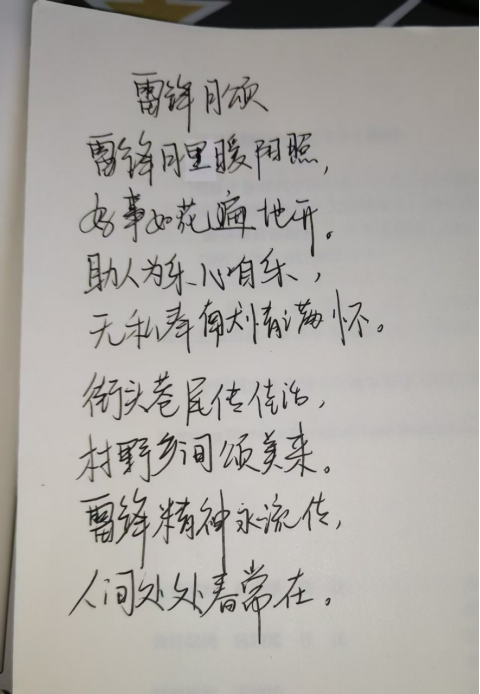 雷锋月颂
雷锋月里暖阳照，
好事如花遍地开。
助人为乐心自乐，
无私奉献情满怀。
街头巷尾传佳话，
村野乡间颂美来。
雷锋精神永流传，
人间处处春常在。